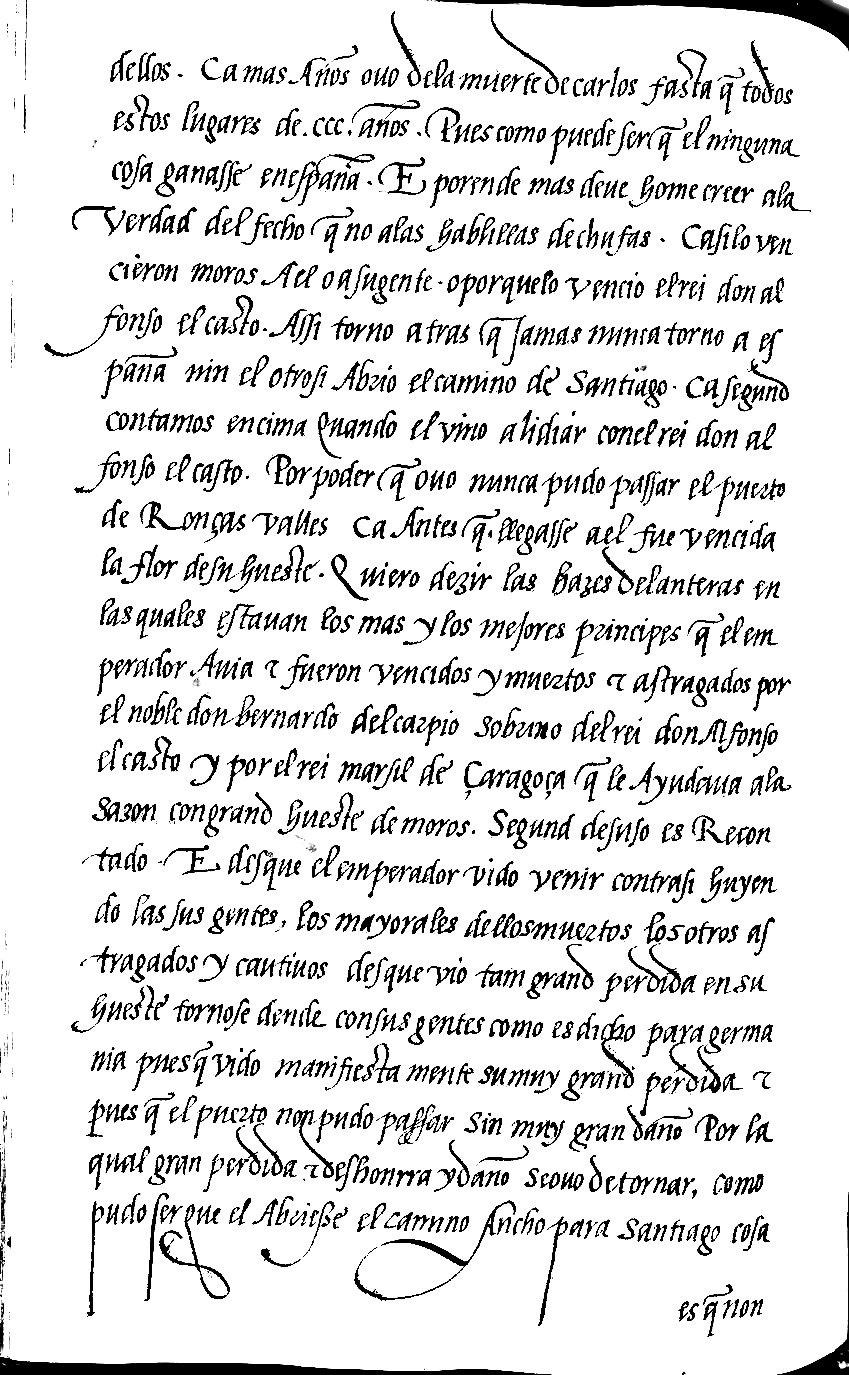 dellos. Ca mas Años ouo dela muerte de carlos fasta q̃ todos
estos lugares de .ccc. años. Pues como puede ser q̃ el ninguna
cosa ganasse en españa. E porende mas deue home creer ala
Verdad del fecho q̃ no alas hablillas de chufas. Ca si lo ven
cieron moros A el o a su gente. o porque lo vencio el rei don al
fonso el casto. Assi torno atras q̃ Jamas nunca torno a es
paña nin el otrosi Abrio el camino de Santiago. Ca segund
contamos encima Quando el vino a lidiar con el rei don al
fonso el casto. Por poder q̃ ouo nunca pudo passar el puerto
de Ronças valles Ca Antes q̃ llegasse a el fue vencida
la flor de su hueste. Quiero dezir las hazes delanteras en
las quales estauan los mas y los mejores principes q̃ el em
perador Auia ⁊ fueron vencidos y muertos ⁊ astragados por
el noble don bernardo del carpio sobrino del rei don Alfonso
el casto y por el rei marsil de Çaragoça q̃ le Ayudaua ala
sazon con grand hueste de moros. Segund desuso es Recon
tado. E desque el emperador vido venir contra si huyen
do las sus gentes, los mayorales dellos muertos los otros as
tragados y cautiuos desque vio tam grand perdida en su
hueste tornose dende con sus gentes como es dicho para germa
nia pues q̃ vido manifiesta mente su muy grand perdida ⁊
pues q̃ el puerto non pudo passar sin muy gran daño Por la
qual gran perdida ⁊ deshonrra y daño se ouo de tornar, como
pudo ser que el Abriesse el camino Ancho para Santiago cosa
es q̃ non